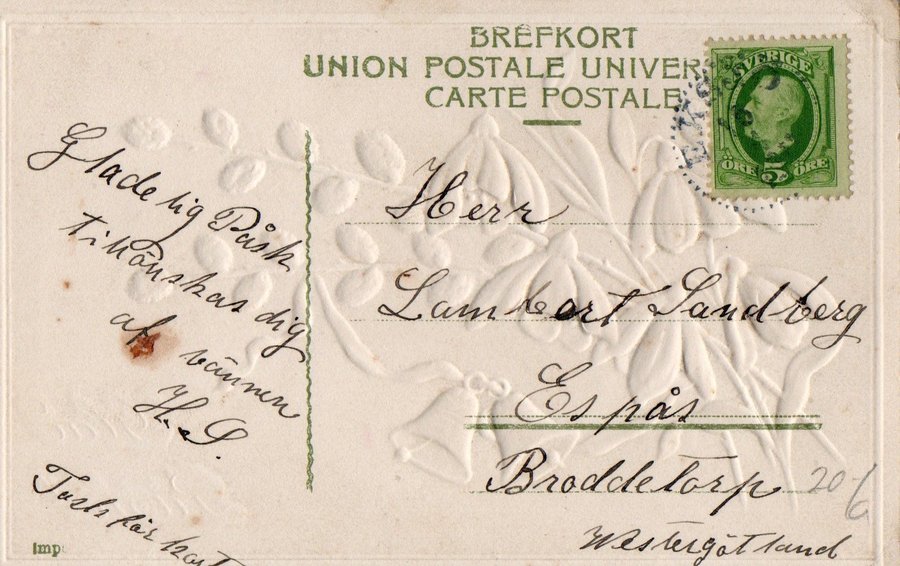 BREFKORT
UNION POSTALE UNIVER
CARTE POSTALE
SVERIGE
ÖRE 5 ÖRE
Gladelig Påsk
tillönskas dig
af vännen
H. S.
Tack för kort
Herr
Lambert Sandberg
Espås
Broddetorp
Westergötland
20
Imp